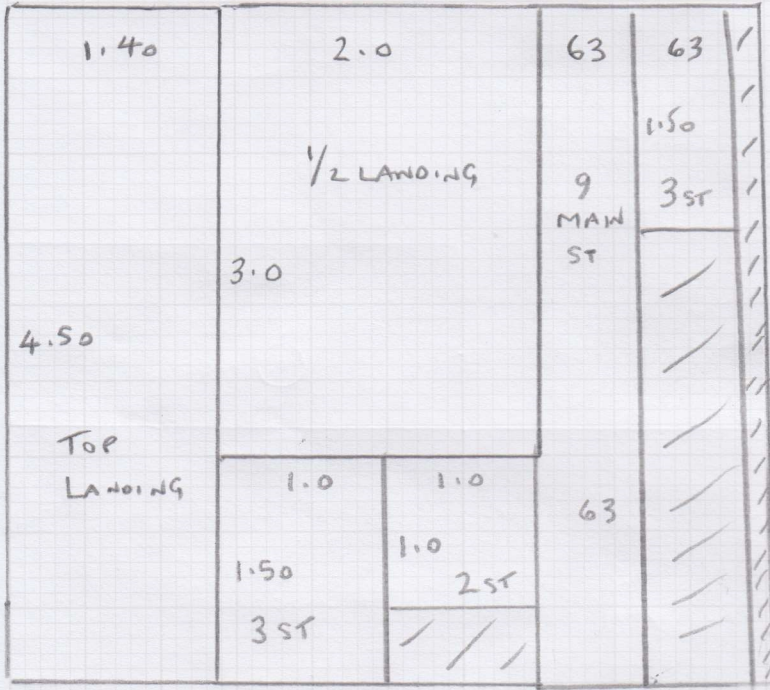 1.40
2.0
63
63
1.50
1/2 LANDING
9
MAIN
ST
3 ST
3.0
4.50
TOP
LANDING
1.0
1.0
63
1.50
3 ST
1.0
2 ST